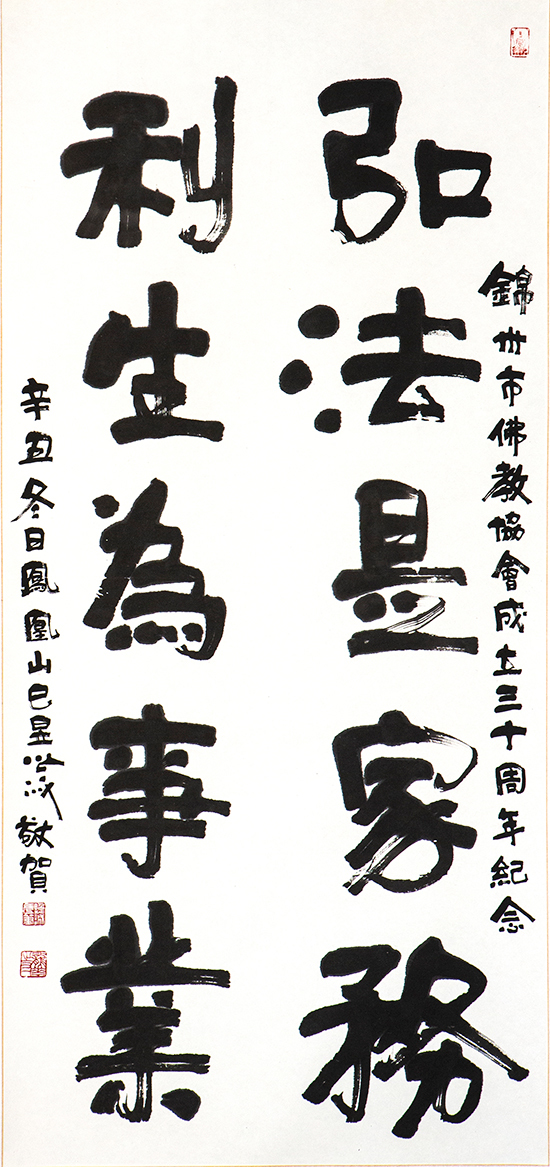 錦州市佛教協會成立三十周年紀念
弘法是家務
利生為事業
辛丑冬日鳳凰山敬賀